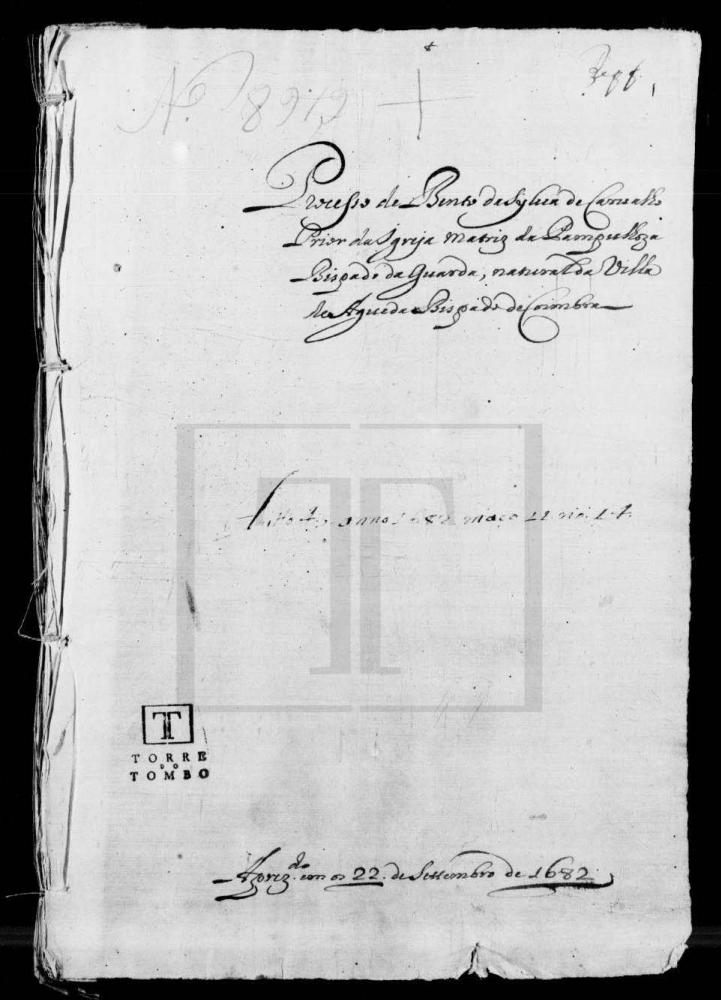 N.º 8919
Processo de Bento da Sylva de Carvalho
Prior da Igreja Matriz da Pampulhoza
Bispado da Guarda, natural da Villa
de Agueda Bispado de Coimbra
anno 1682 maço 11 nº 14
TORRE
DO
TOMBO
em os 22 de Settembro de 1682